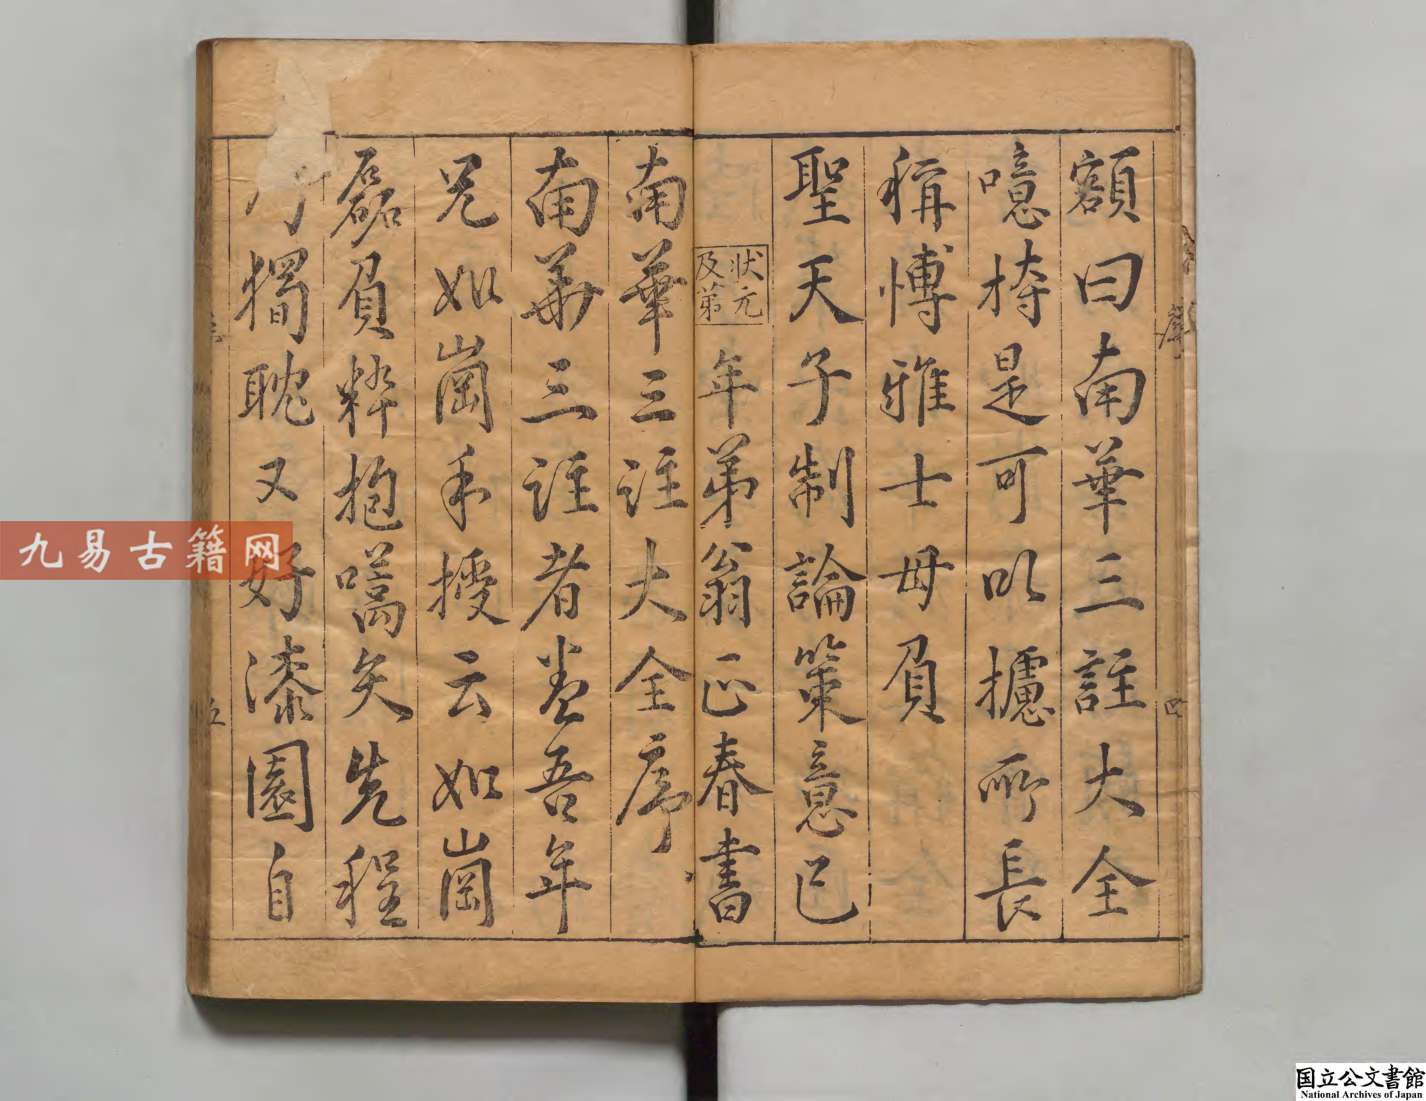 額曰南華三註大全
噫持是可以據所長
稱博雅士毋負
聖天子制論策意已
狀元
及第
年弟翁正春書
南華三註大全序
南華三註者葢吾年
兄如崗手授云如崗
磊負粹抱嵩矢先程
獨耽又好漆園自
序
四
五
九易古籍网
国立公文書館
National Archives of Japan